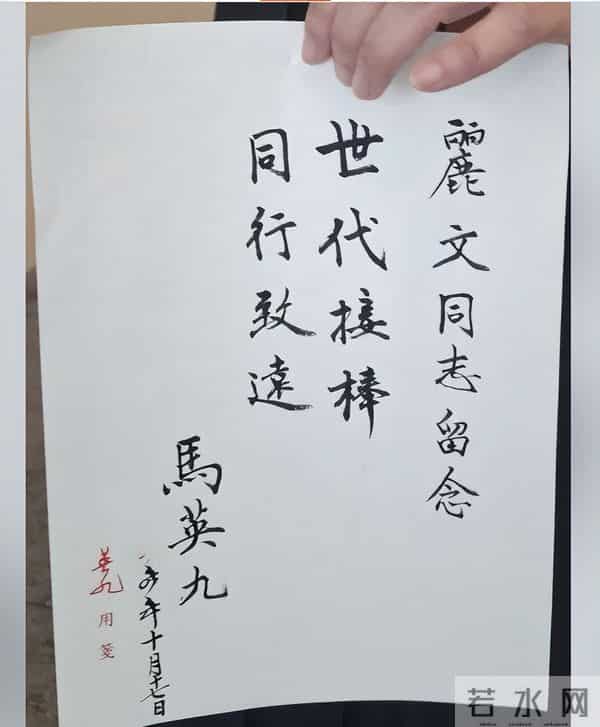 麗文同志留念
世代接棒
同行致遠
馬英九
年十月十七日
英九用箋
若水网